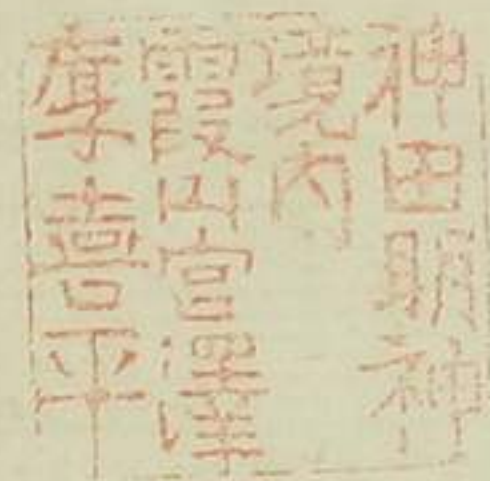 神田明神
境内
霞山宮澤
孝喜平